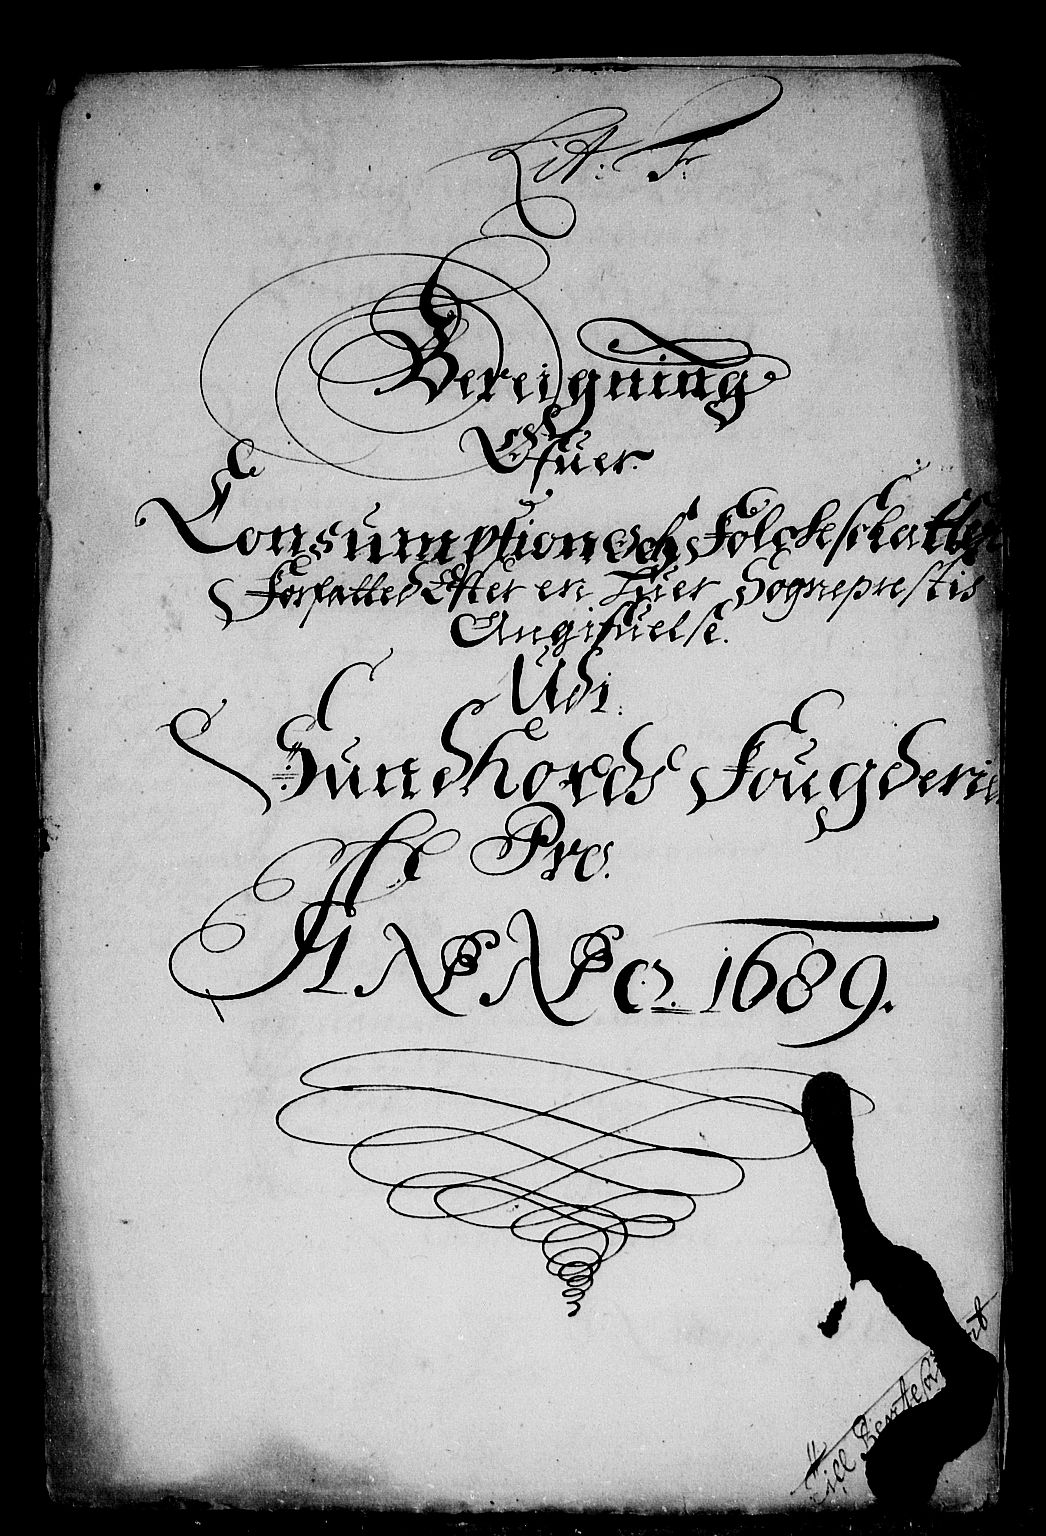 Lit: F:
Bereigning
Ofuer
Consumption Och Folckeskatten
Forfatted Efter en huer Sogneprestis
Angifuelse.
Udi
SundHords Fougderie
Pro.
ANNO 1689.
Till